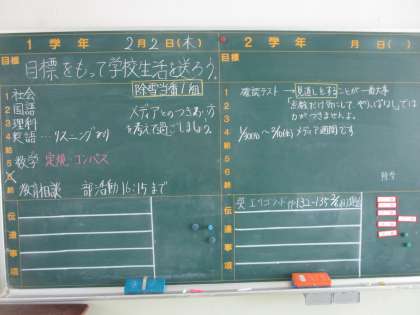 1 学年 2月2日(木)
目標
目標をもって学校生活を送ろう。
1 社会
2 国語
3 理科
4 英語…リスニングあり
5 数学 定規 コンパス
教育相談 部活動16:15まで
除雪当番1組
メディアとのつきあい方
を考えて過ごしましょう。
伝達事項
2 学年 月 日( )
目標
1
2
3
4
5
6
確認テスト→見直しをすることが一番大事
「点数だけ気にして、やりっぱなし」では
力がつきませんよ。
メディア週間です
伝達事項